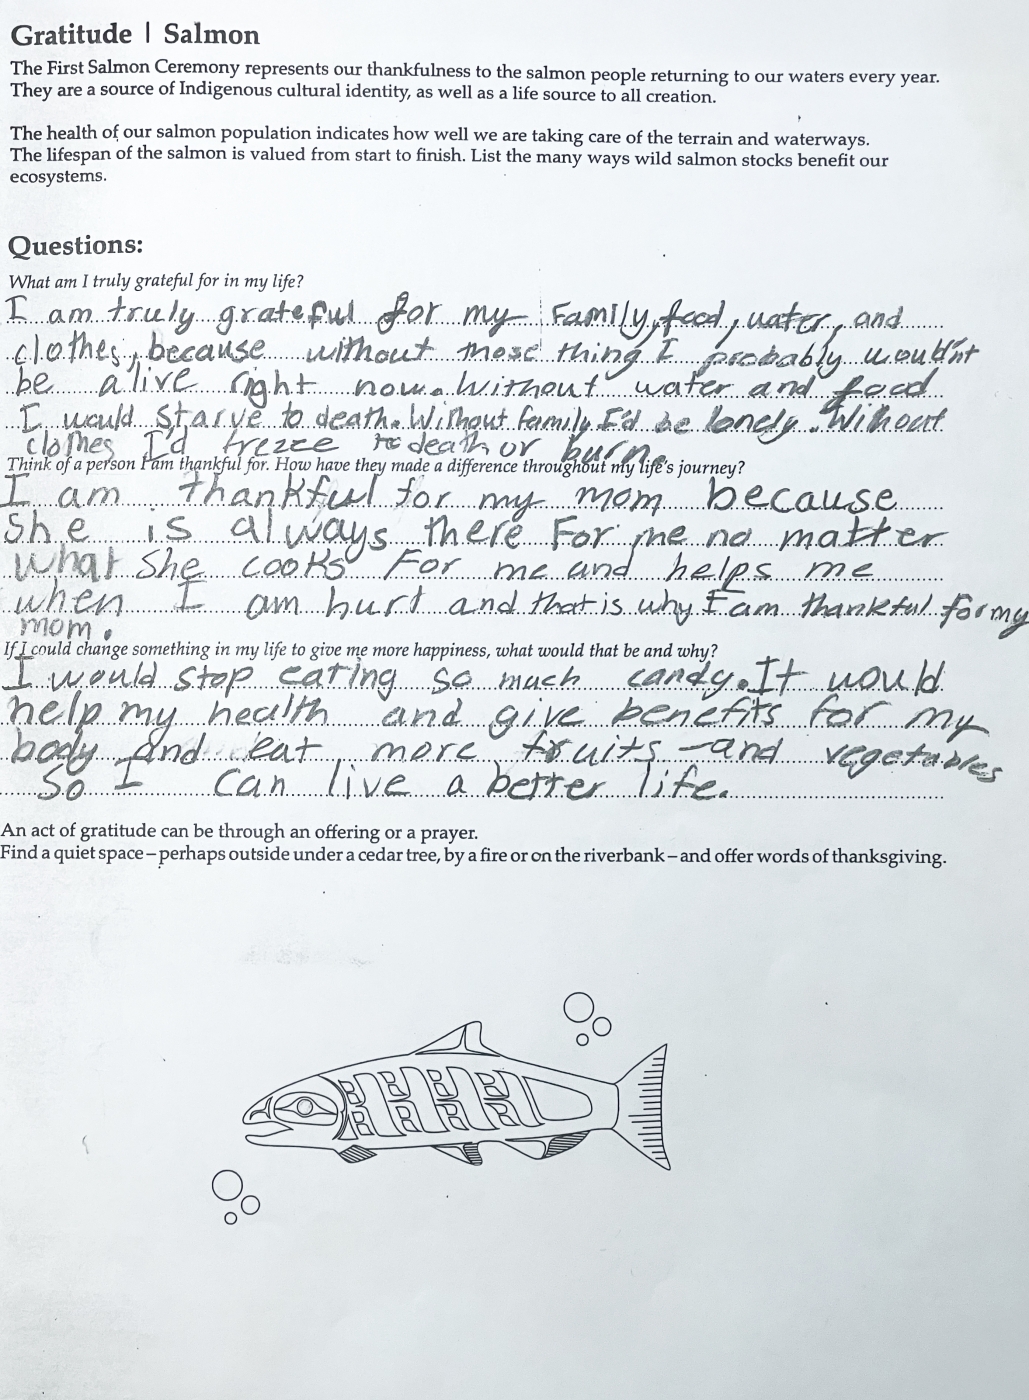 Gratitude | Salmon
The First Salmon Ceremony represents our thankfulness to the salmon people returning to our waters every year.
They are a source of Indigenous cultural identity, as well as a life source to all creation.
The health of our salmon population indicates how well we are taking care of the terrain and waterways.
The lifespan of the salmon is valued from start to finish. List the many ways wild salmon stocks benefit our
ecosystems.
Questions:
What am I truly grateful for in my life?
I am truly grateful for my Family, food, water, and
clothes, because without these thing I probably wouldn't
be alive right now. Without water and food
I would starve to death. Without family I'd be lonely. Without
clothes I'd frezze to death or burn.
Think of a person I am thankful for. How have they made a difference throughout my life's journey?
I am thankful for my mom because
she is always there For me no matter
what she cooks For me and helps me
when I am hurt and that is why I am thankful for my
mom.
If I could change something in my life to give me more happiness, what would that be and why?
I would stop eating so much candy. It would
help my health and give benefits for my
body and eat more fruits and vegetables
So I can live a better life.
An act of gratitude can be through an offering or a prayer.
Find a quiet space – perhaps outside under a cedar tree, by a fire or on the riverbank – and offer words of thanksgiving.